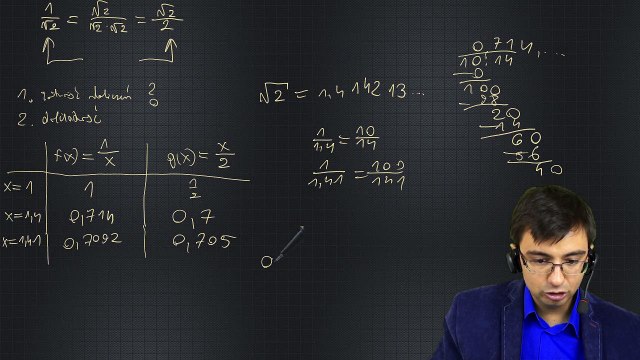 1/√2 = √2/(√2·√2) = √2/2
1.
2. dokładność
f(x) = 1/x g(x) = x/2
x=1 1 1/2
x=1,4 0,714 0,7
x=1,41 0,7092 0,705
√2 = 1,4 142 13...
1/1,4 = 10/14
1/1,41 = 100/141
0
0,714,...
10:14
0
100
98
20
14
60
56
40